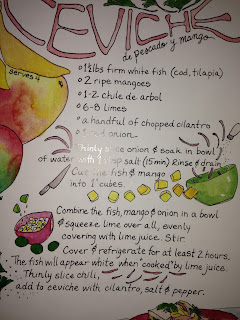 CEVICHE
de pescado y mango
serves 4
1½ lbs firm white fish (cod, tilapia)
2 ripe mangoes
1-2 chile de arbol
6-8 limes
a handful of chopped cilantro
onion
Thinly slice onion & soak in bowl
of water with salt (15 min) Rinse & drain
Cut the fish & mango
into 1" cubes.
Combine the fish, mango & onion in a bowl
& squeeze lime over all, evenly
covering with lime juice. Stir.
Cover & refrigerate for at least 2 hours.
The fish will appear white when "cooked" by lime juice.
Thinly slice chili,
add to ceviche with cilantro, salt & pepper.